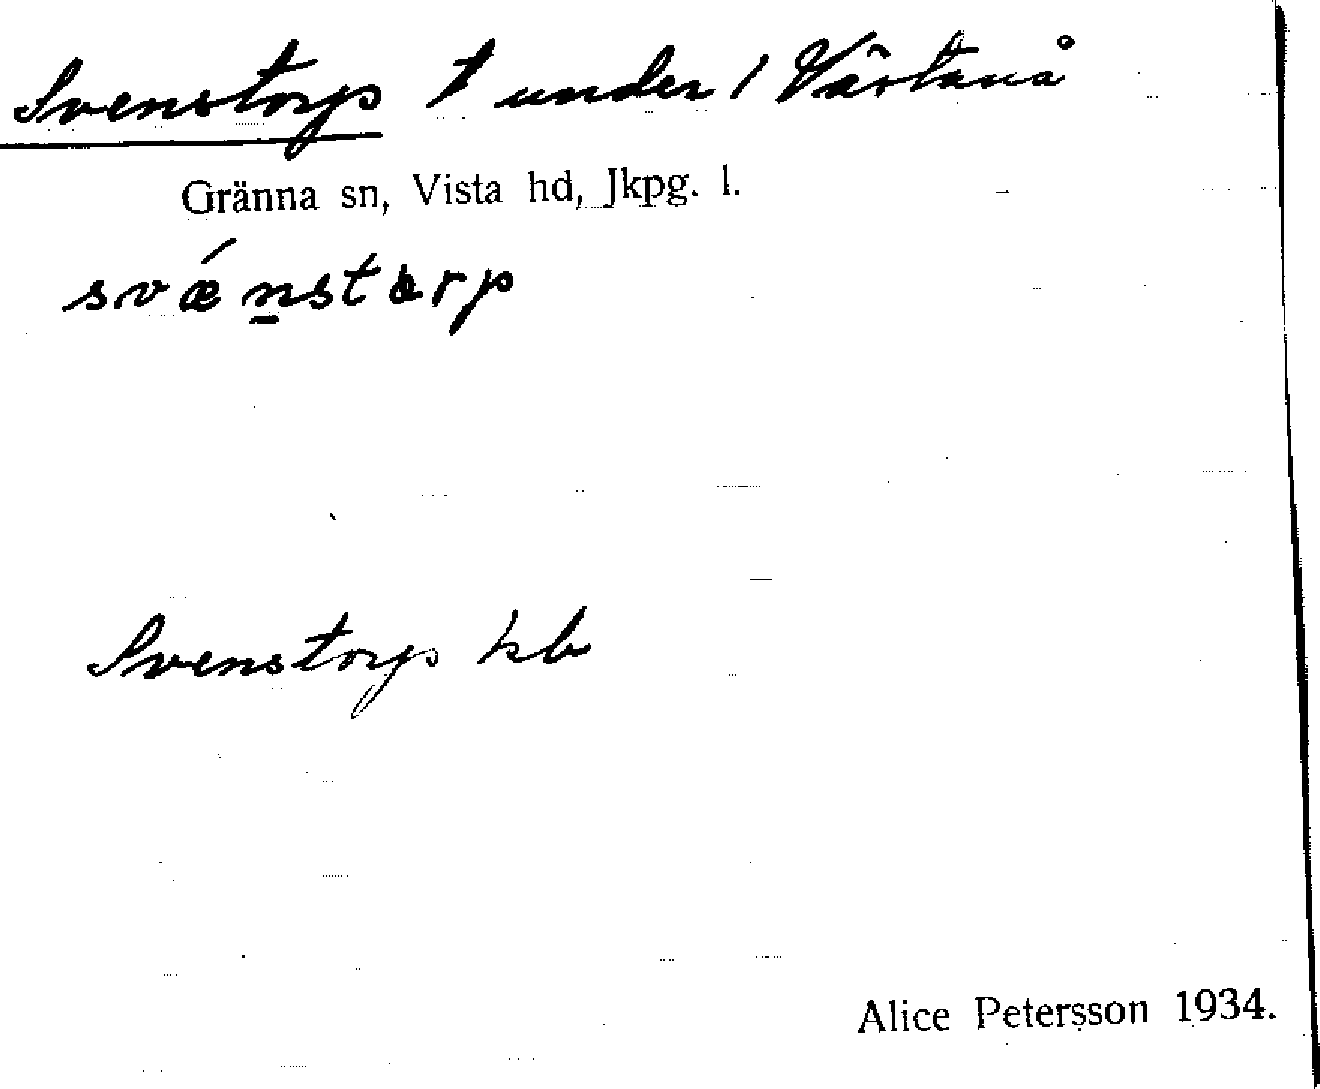 Svenstorp t under 1 Västanå
Gränna sn, Vista hd, Jkpg. l.
svǽn̲stȧrp
Svenstorp kb
Alice Petersson 1934.